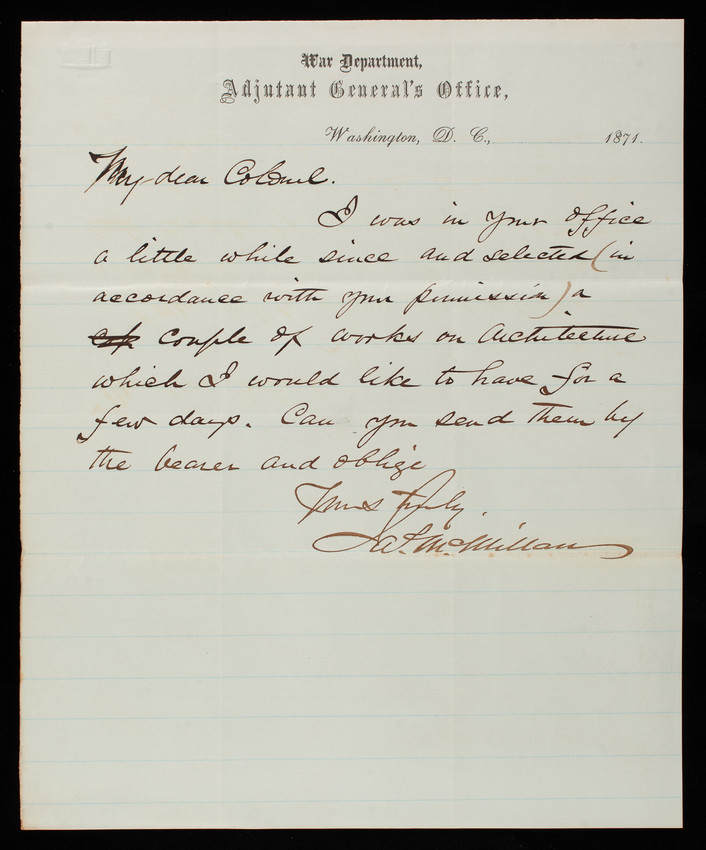 War Department,
Adjutant General's Office,
Washington, D. C., 1871.
My dear Colonel.
I was in your office
a little while since and selected (in
accordance with your permission) a
couple of works on Architecture
which I would like to have for a
few days. Can you send them by
the bearer and oblige
Yours truly,
Ja. McMillan